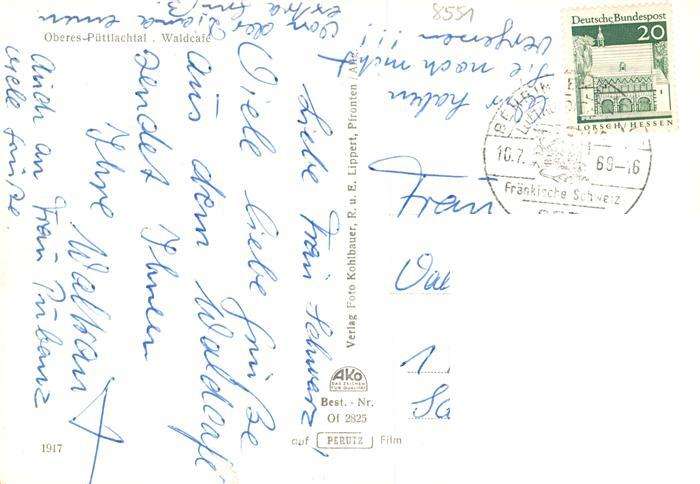 Oberes-Püttlachtal . Waldcafé
Liebe Frau Schwarz,
Viele liebe Grüße
aus dem Waldcafé
sendet Ihnen
Ihre Waltraut
Auch an Frau
viele Grüße.
von der
extra
einen
Wir haben
Sie noch nicht
vergessen!!!
8551
Verlag Foto Kohlbauer, R. u. E. Lippert, Pfronten / Allg.
AKO
DAS ZEICHEN
FÜR QUALITÄT
Best. - Nr.
Of 2825
auf PERUTZ Film
1917
Deutsche Bundespost
20
LORSCH/HESSEN
10.7.
69-16
Fränkische Schweiz
Frau
1